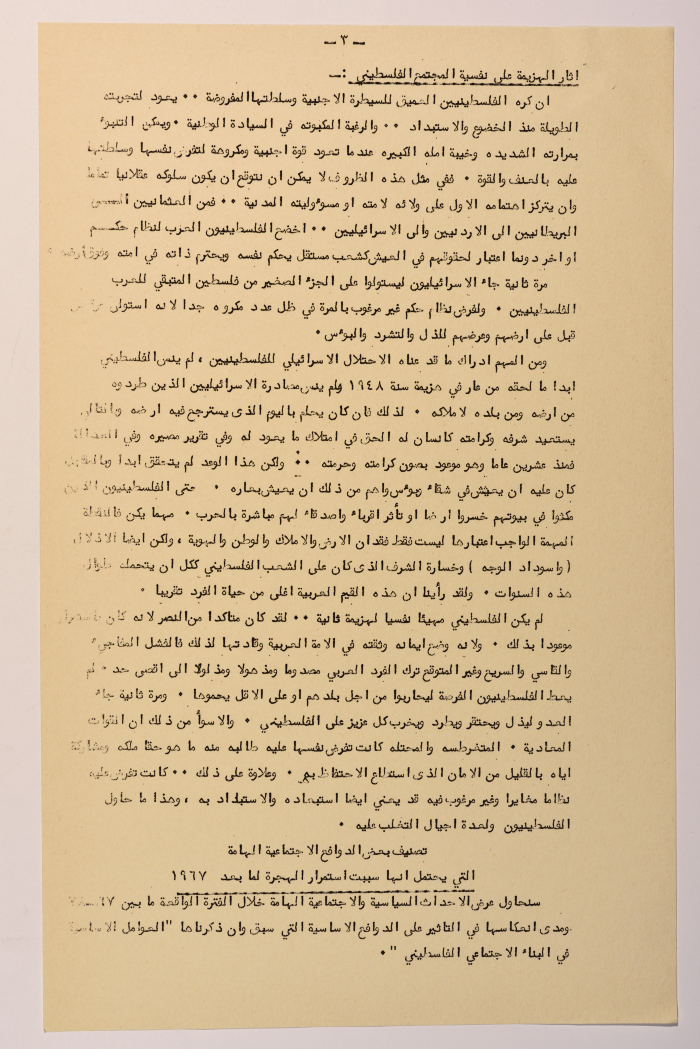 — ٣ —
اثار الهزيمة على نفسية المجتمع الفلسطيني :—
ان كره الفلسطينيين العميق للسيطرة الاجنبية وسلطتها المفروضة ٠٠ يعود لتجربته
الطويلة منذ الخضوع والاستبداد ٠٠ والرغبة المكبوته في السيادة الوطنية ٠ ويمكن التنبوء
بمرارته الشديده وخيبة امله الكبيره عندما تعود قوة اجنبية ومكروهة لتفرض نفسها وسلطتها
عليه بالعنف والقوة ٠ ففي مثل هذه الظروف لا يمكن ان نتوقع ان يكون سلوكه عقلانيا تماما
وان يتركز اهتمامه الاول على ولائه لامته او مسوءوليته المدنية ٠٠ فمن العثمانيين الى
البريطانيين الى الاردنيين والى الاسرائيليين ٠٠ اخضع الفلسطينيون العرب لنظام حكم
او اخر دونما اعتبار لحقوقهم في العيش كشعب مستقل يحكم نفسه ويحترم ذاته في امته وفوق أرضه ٠
مرة ثانية جاء الاسرائيليون ليستولوا على الجزء الصغير من فلسطين المتبقي للعرب
الفلسطينيين ٠ ولفرض نظام حكم غير مرغوب بالمرة في ظل عدد مكروه جدا لانه استولى من
قبل على ارضهم وعرضهم للذل والتشرد والبوءس ٠
ومن المهم ادراك ما قد عناه الاحتلال الاسرائيلي للفلسطينيين ، لم ينس الفلسطيني
ابدا ما لحقه من عار في هزيمة سنة ١٩٤٨ ولم ينس مصادرة الاسرائيليين الذين طردوه
من ارضه ومن بلده لاملاكه ٠ لذلك فان كان يحلم باليوم الذى يسترجع فيه ارضه وبالتالي
يستعيد شرفه وكرامته كانسان له الحق في امتلاك ما يعود له وفي تقرير مصيره وفي العدالة
فمنذ عشرين عاما وهو موعود بصون كرامته وحرمته ٠٠ ولكن هذا الوعد لم يتحقق ابدا وبالمقابل
كان عليه ان يعيش في شقاء وبوءس واهم من ذلك ان يعيش بعاره ٠ حتى الفلسطينيون الذين
مكثوا في بيوتهم خسروا ارضا او تأثر اقرباء واصدقاء لهم مباشرة بالحرب ٠ مهما يكن فالنقطة
المهمة الواجب اعتبارها ليست فقط فقدان الارض والاملاك والوطن والهوية ، ولكن ايضا الاذلال
( واسوداد الوجه ) وخسارة الشرف الذى كان على الشعب الفلسطيني ككل ان يتحمله طوال
هذه السنوات ٠ ولقد رأينا ان هذه القيم العربية اغلى من حياة الفرد تقريبا ٠
لم يكن الفلسطيني مهيئا نفسيا لهزيمة ثانية ٠٠ لقد كان متاكدا من النصر لانه كان باستمرار
موعودا بذلك ٠ ولانه وضع ايمانه وثقته في الامة العربية وقادتها لذلك فالفشل المفاجيء
والقاسي والسريع وغير المتوقع ترك الفرد العربي مصدوما ومذهولا ومذلولا الى اقصى حد ٠ لم
يعط الفلسطينيون الفرصة ليحاربوا من اجل بلدهم او على الاقل يحموها ٠ ومرة ثانية جاء
العدو ليذل ويحتقر ويطرد ويخرب كل عزيز على الفلسطيني ٠ والاسوأ من ذلك ان القوات
المعادية ٠ المتغطرسه والمحتله كانت تفرض نفسها عليه طالبه منه ما هو حقا ملكه ومشاركة
اياه بالقليل من الامان الذى استطاع الاحتفاظ به ٠ وعلاوة على ذلك ٠٠ كانت تفرض عليه
نظاما مغايرا وغير مرغوب فيه قد يعني ايضا استبعاده والاستبداد به ، وهذا ما حاول
الفلسطينيون ولعدة اجيال التغلب عليه ٠
تصنيف بعض الدوافع الاجتماعية الهامة
التي يحتمل انها سببت استمرار الهجرة لما بعد ١٩٦٧
سنحاول عرض الاحداث السياسية والاجتماعية الهامة خلال الفترة الواقعة ما بين
ومدى انعكاسها في التاثير على الدوافع الاساسية التي سبق وان ذكرناها "العوامل الاساسية
في البناء الاجتماعي الفلسطيني " ٠